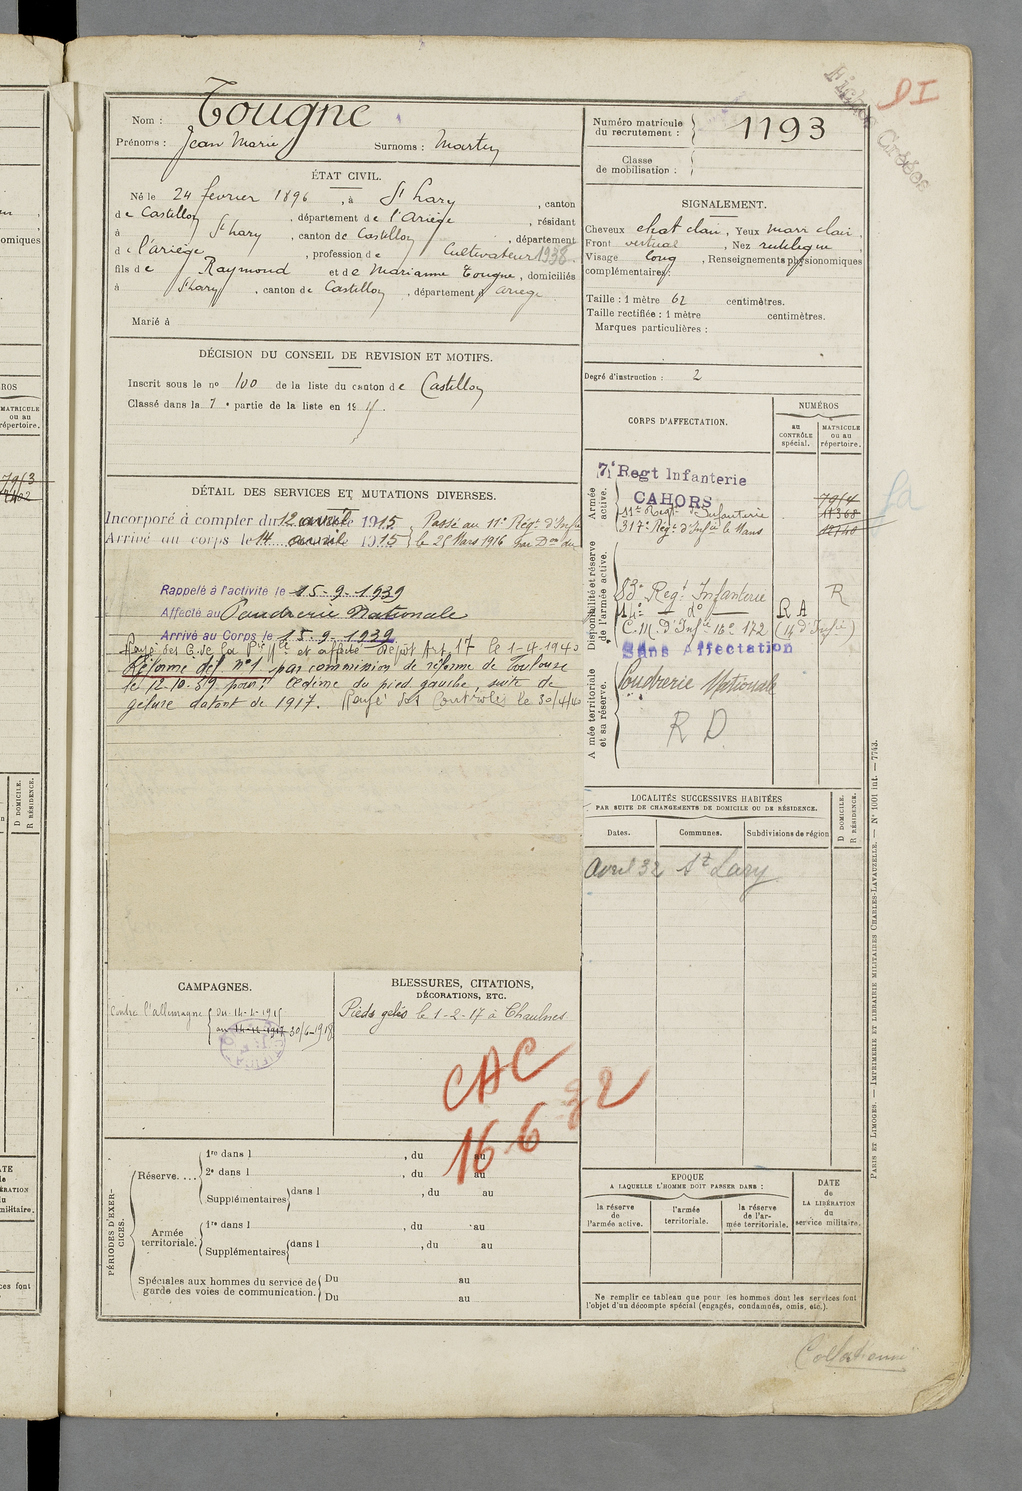 Nom : Tougne
Prénoms : Jean Marie Surnoms : Martin
ÉTAT CIVIL.
Né le 24 février 1896, à St Lary, canton
de Castillon, département de l'Ariège, résidant
à St Lary, canton de Castillon, département
de l'ariège, profession de Cultivateur 1938
fils de Raymond et de Marianne Tougne, domiciliés
à St Lary, canton de Castillon, département d Ariège
Marié à
DÉCISION DU CONSEIL DE REVISION ET MOTIFS.
Inscrit sous le no 100 de la liste du canton de Castillon
Classé dans la 7e partie de la liste en 19 15.
DÉTAIL DES SERVICES ET MUTATIONS DIVERSES.
Incorporé à compter du 12 avril 1915, Passé au 11e Régt d'Infie
Arrivé au corps le 14 avril 1915 le 25 Mars 1916 par Don du
Rappelé à l'activité le 15-9-1939
Affecté au Poudrerie Nationale
Arrivé au Corps le 15-9-1939
Rayé des C. de la et affecté Dépôt Art 17 le 1-4-1940
Réforme déf. no 1 par commission de réforme de Toulouse
le 12-10-39 pour : Œdème du pied gauche, suite de
gelure datant de 1917. Rayé des Controles le 30/4/40
CAMPAGNES.
Contre l'allemagne Du 14-4-1915
au 14-12-1917 30/6-1918
BLESSURES, CITATIONS,
DÉCORATIONS, ETC.
Pieds gelés le 1-2-17 à Chaulnes
CAC
16 6 32
PÉRIODES D'EXERCICES.
Réserve.... 1re dans l , du au
2e dans l , du au
Supplémentaires dans l , du au
Armée territoriale. 1re dans l , du au
Supplémentaires dans l , du au
Spéciales aux hommes du service de garde des voies de communication. Du au
Du au
Fiches Créées
DI
Numéro matricule du recrutement : 1193
Classe de mobilisation :
SIGNALEMENT.
Cheveux chat clair, Yeux marr clair,
Front vertical, Nez rectiligne,
Visage long, Renseignements physionomiques
complémentaires :
Taille : 1 mètre 62 centimètres.
Taille rectifiée : 1 mètre centimètres.
Marques particulières :
Degré d'instruction : 2
CORPS D'AFFECTATION.
NUMÉROS
au CONTRÔLE spécial.
MATRICULE ou au répertoire.
Armée active.
7e Regt Infanterie
CAHORS
11e Regt d'Infanterie
317e Régt d'Infie le Mans
7954
11368
Disponibilité et réserve de l'armée active.
83e Regt Infanterie R
14e do R A
C.M. d'Infie 16e 172 (14 d'Infie)
Sans Affectation
Armée territoriale et sa réserve.
Poudrerie Nationale
R D
LOCALITÉS SUCCESSIVES HABITÉES
PAR SUITE DE CHANGEMENTS DE DOMICILE OU DE RÉSIDENCE.
D DOMICILE.
R RÉSIDENCE.
Dates. Communes. Subdivisions de région
Avril 32 St Lary
EPOQUE
A LAQUELLE L'HOMME DOIT PASSER DANS :
la réserve de l'armée active.
l'armée territoriale.
la réserve de l'armée territoriale.
DATE de LA LIBÉRATION du service militaire.
Ne remplir ce tableau que pour les hommes dont les services font
l'objet d'un décompte spécial (engagés, condamnés, omis, etc.).
PARIS ET LIMOGES. — IMPRIMERIE ET LIBRAIRIE MILITAIRES CHARLES-LAVAUZELLE. — No 1001 int. — 7743.